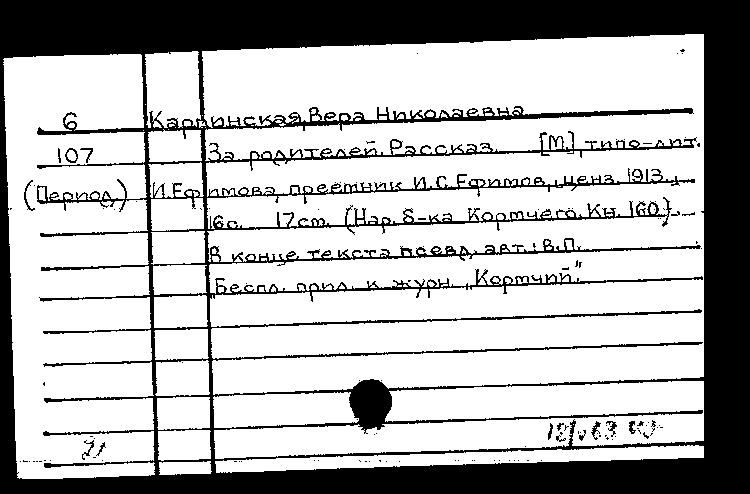 6 Карпинская, Вера Николаевна
107 За родителей. Рассказ. [М], типо-лит.
(Период) И. Ефимова, преемник И.С. Ефимов, ценз. 1913.
16с. 17см. (Нар. б-ка Кормчего. Кн. 160).
В конце текста псевд. авт.: В.П.
Беспл. прил. к журн. „Кормчий”.